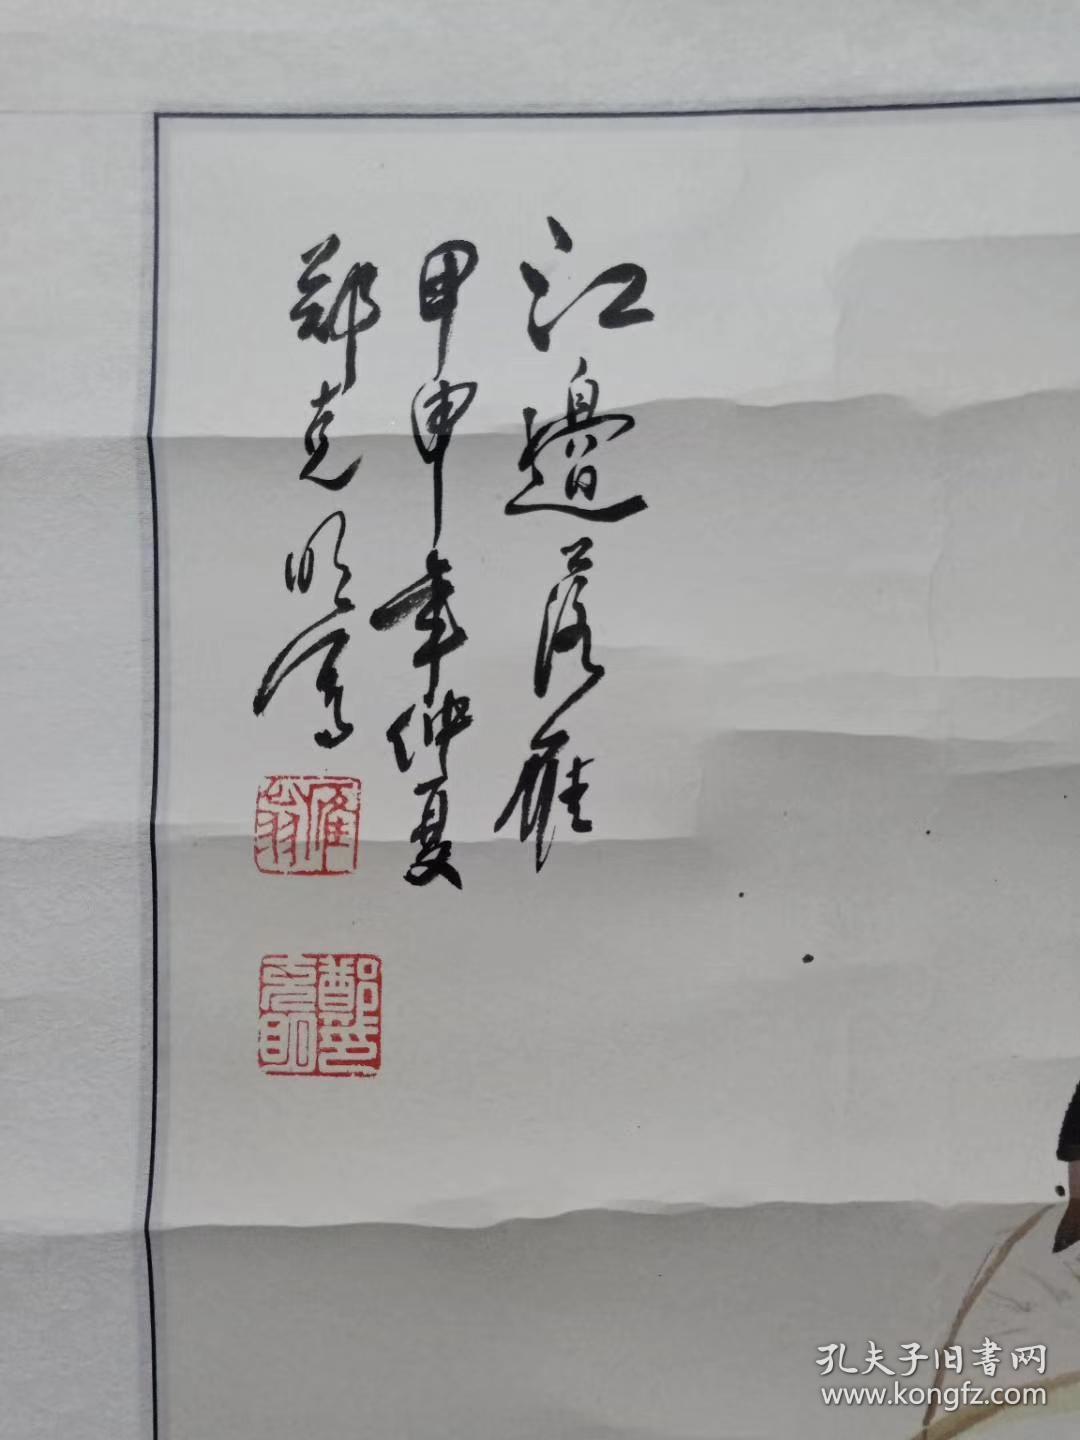 江邊落雁
甲申年仲夏
郑克明写
雁翁
鄭克明
孔夫子旧書网
www.kongfz.com